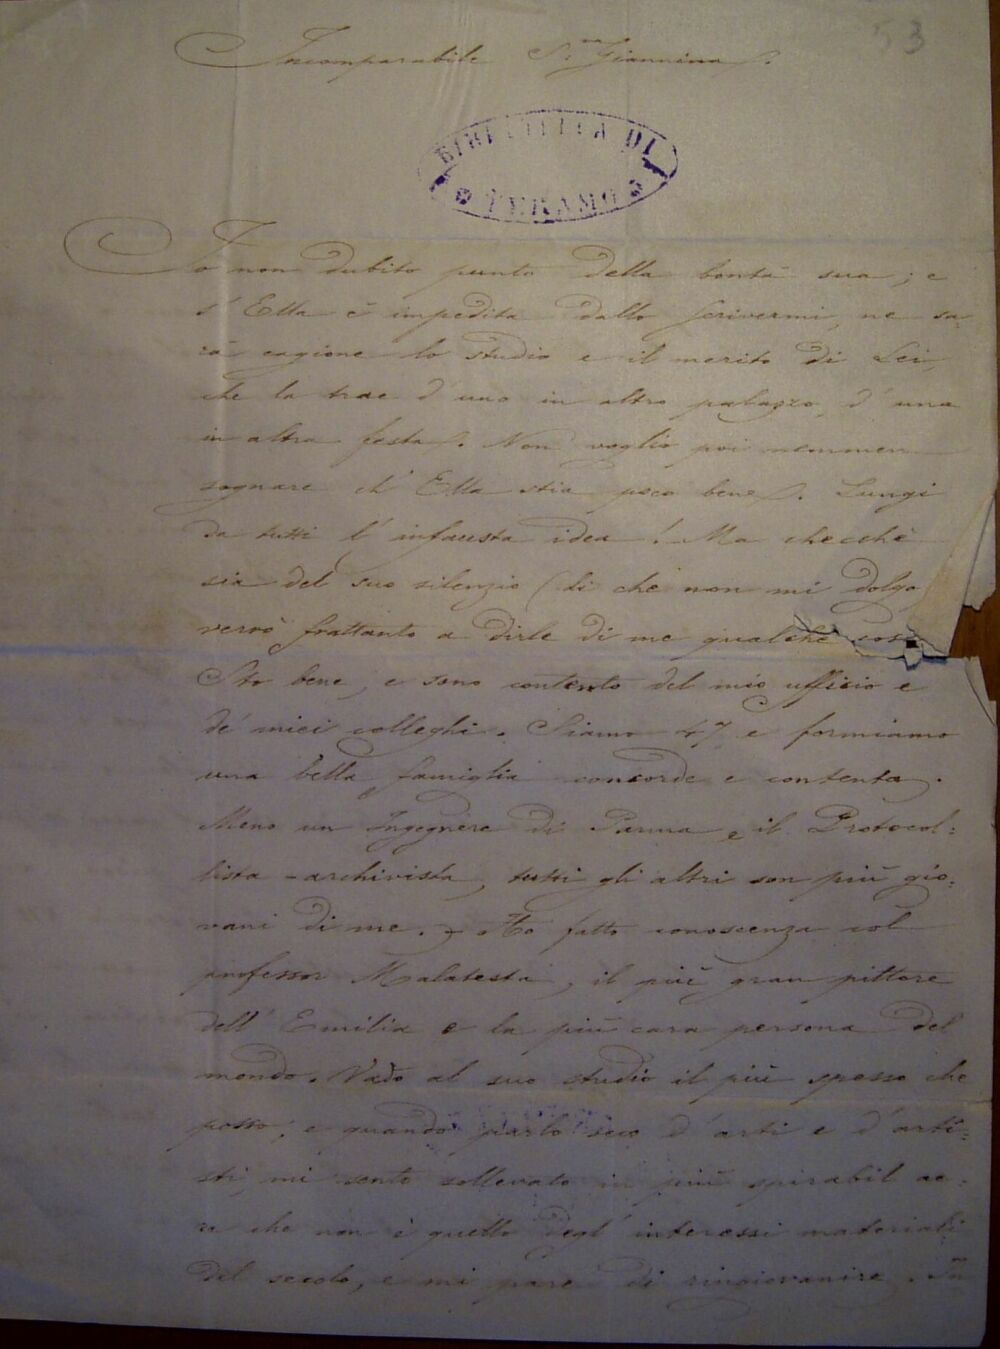 53
Incomparabile S.ra Giannina.
BIBLIOTECA DI
TERAMO
Io non dubito punto della bontà sua; e
s' Ella è impedita dallo scrivermi, ne sa-
rà cagione lo studio e il merito di Lei,
che la trae d' uno in altro palazzo, d' una
in altra festa. Non voglio poi nemmen
sognare ch' Ella stia poco bene. Lungi
da tutti l' infausta idea! Ma checchè
sia del suo silenzio (di che non mi dolgo
verrò frattanto a dirle di me qualche cos
Sto bene, e sono contento del mio uffizio e
de' miei colleghi. Siamo 47 e formiamo
una bella famiglia concorde e contenta.
Meno un Ingegnere di Parma e il Protocol=
lista-archivista, tutti gli altri son più gio=
vani di me. Ho fatto conoscenza col
professor Malatesta, il più gran pittore
dell' Emilia e la più cara persona del
mondo. Vado al suo studio il più spesso che
posso; e quando parlo seco d' arti e d' arti=
sti, mi sento sollevato in più spirabil ae=
re che non è quello degl' interessi materiali
del secolo, e mi pare di ringiovanire. In